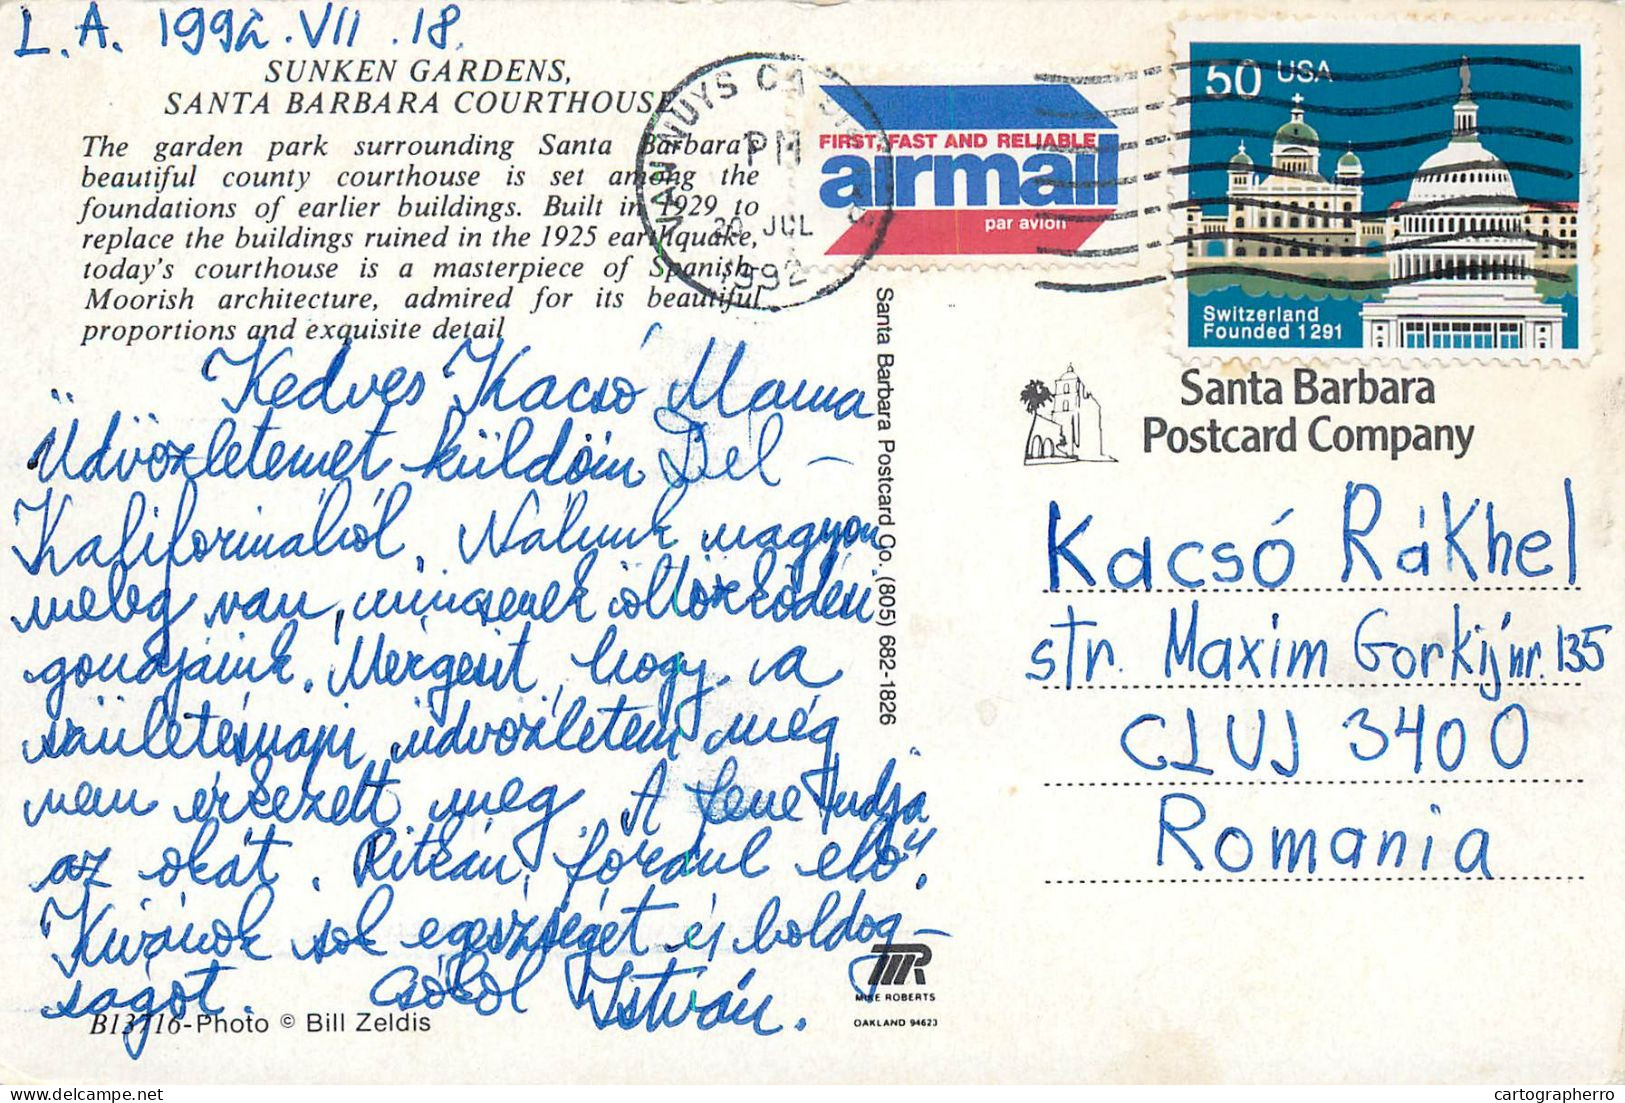 L.A. 1992.VII.18.
SUNKEN GARDENS,
SANTA BARBARA COURTHOUSE
The garden park surrounding Santa Barbara's
beautiful county courthouse is set among the
foundations of earlier buildings. Built in 1929 to
replace the buildings ruined in the 1925 earthquake,
today's courthouse is a masterpiece of Spanish-
Moorish architecture, admired for its beautiful
proportions and exquisite detail
Kedves Kacsó Mama
Üdvözletemet küldöm Dél-
Kaliforniából. Nálunk nagyon
meleg van, nincsenek öltözködési
gondjaink. Mérges, hogy a
születésnapi üdvözletem még
nem érkezett meg. A fene tudja
az okát. Ritkán fordul elő.
Kívánok sok egészséget és boldog-
ságot. Csókol István.
B13716-Photo © Bill Zeldis
VAN NUYS CA
PM
20 JUL
1992
FIRST, FAST AND RELIABLE
airmail
par avion
50 USA
Switzerland
Founded 1291
Santa Barbara Postcard Co. (805) 682-1826
Santa Barbara
Postcard Company
Kacsó Rákhel
str. Maxim Gorkij nr. 135
CLUJ 3400
Romania
MR
MIKE ROBERTS
OAKLAND 94623
cartographerro